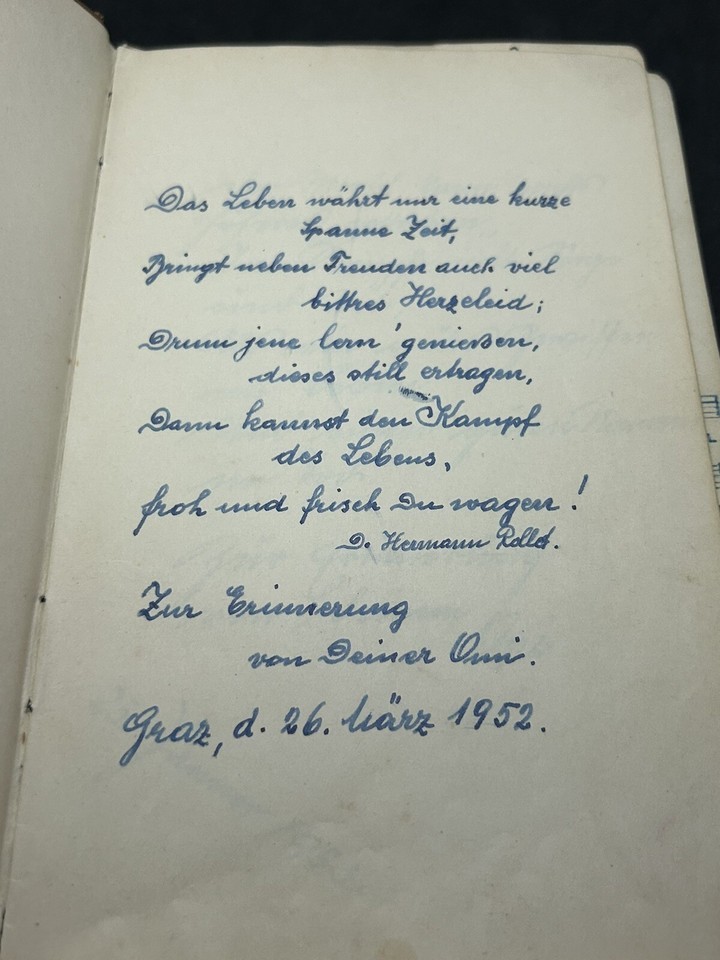 Das Leben währt nur eine kurze
Spanne Zeit,
Bringt neben Freuden auch viel
bittres Herzeleid;
Drum jene lern' genießen,
dieses still ertragen,
Dann kannst den Kampf
des Lebens,
froh und frisch Du wagen!
D. Hermann Rollet.
Zur Erinnerung
von Deiner Omi.
Graz, d. 26. März 1952.